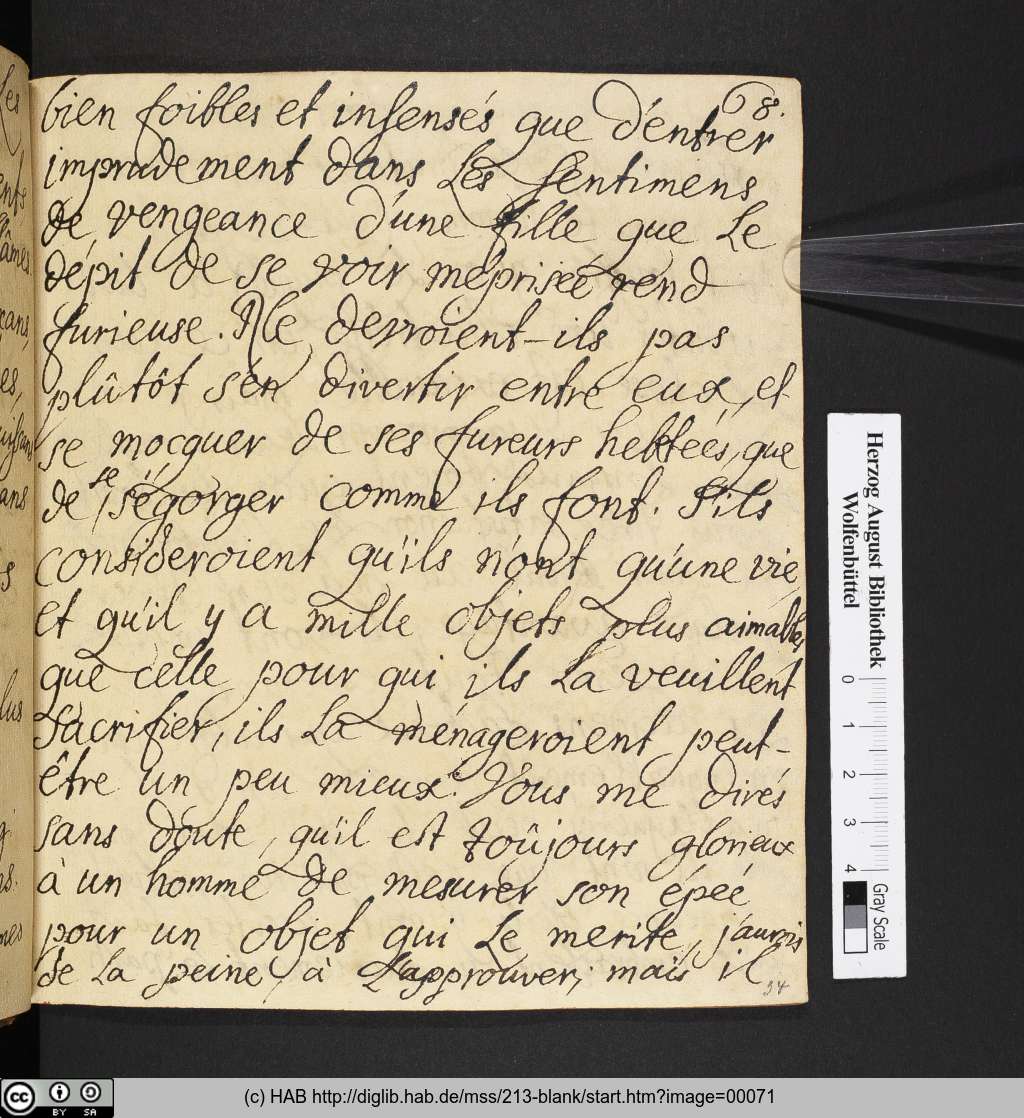 68.
bien foibles et insensés que d'entrer
imprudement dans Les sentimens
de vengeance d'une fille que Le
dépit de se voir méprisée rend
furieuse. Ne devroient-ils pas
plûtôt s'en divertir entre eux, et
se mocquer de ses fureurs hebtées, que
de se s'égorger comme ils font. S'ils
consideroient qu'ils n'ont qu'une vie,
et qu'il y a mille objets plus aimables
que celle pour qui ils La veuillent
Sacrifier, ils La ménageroient peut-
être un peu mieux. Vous me dirés
sans doute, qu'il est toûjours glorieux
à un homme de mesurer son épée
pour un objet qui Le merite, j'aurois
de La peine, à L'approuver; mais il
34
Herzog August Bibliothek
Wolfenbüttel
0 1 2 3 4
Gray Scale
cc BY SA
(c) HAB http://diglib.hab.de/mss/213-blank/start.htm?image=00071